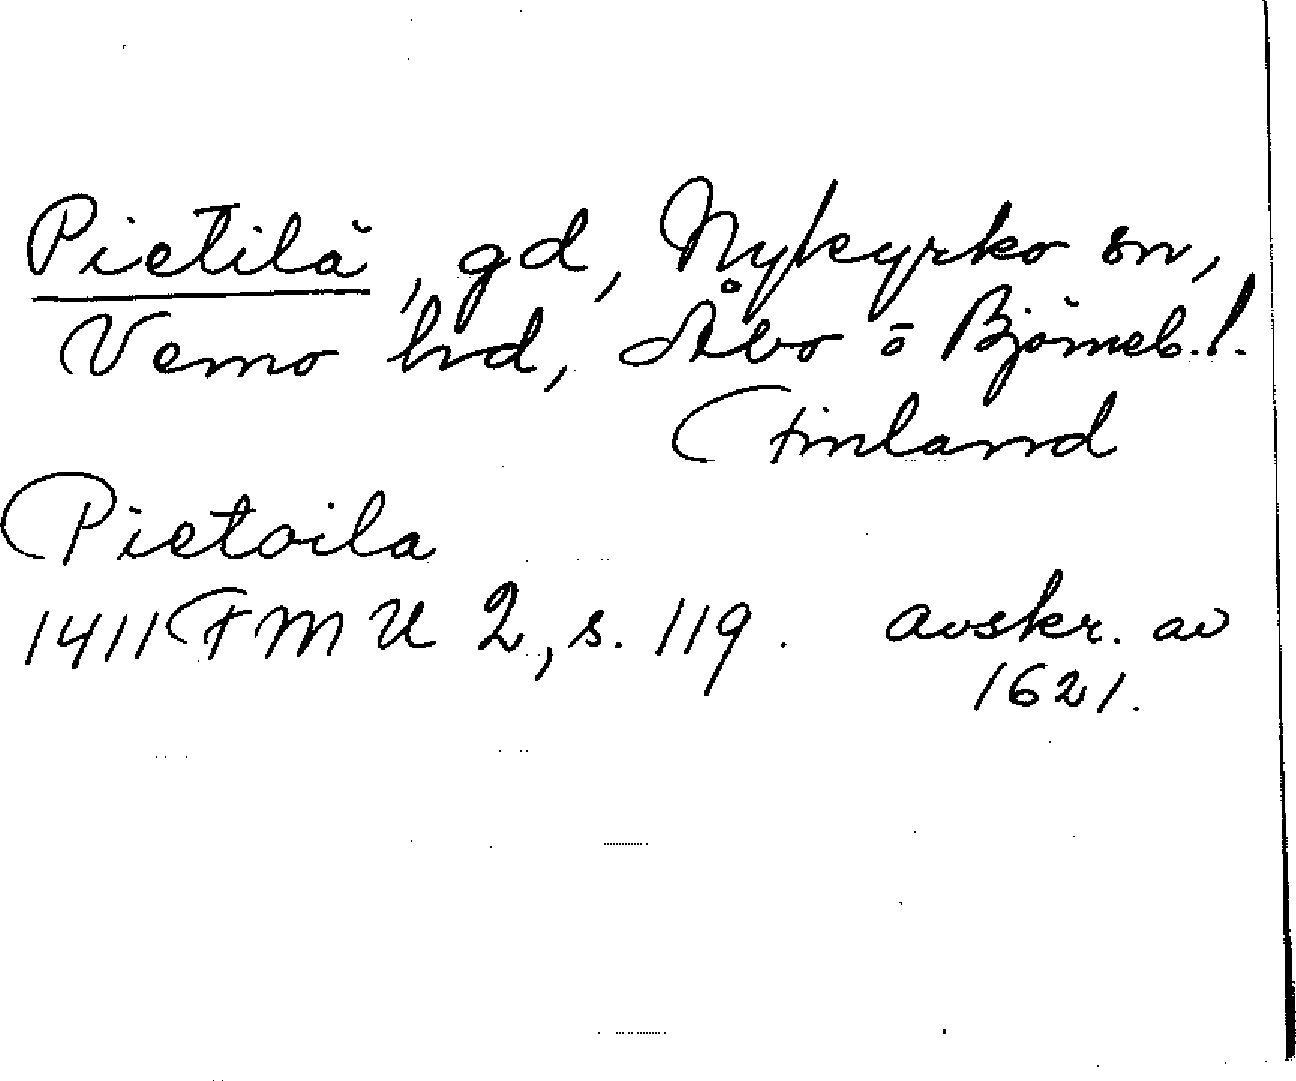 Pietilä, gd, Nykyrko sn,
Vemo hd, Åbo o Björneb. l.
Finland
Pietoila
1411 FMU 2, s. 119. avskr. av
1621.